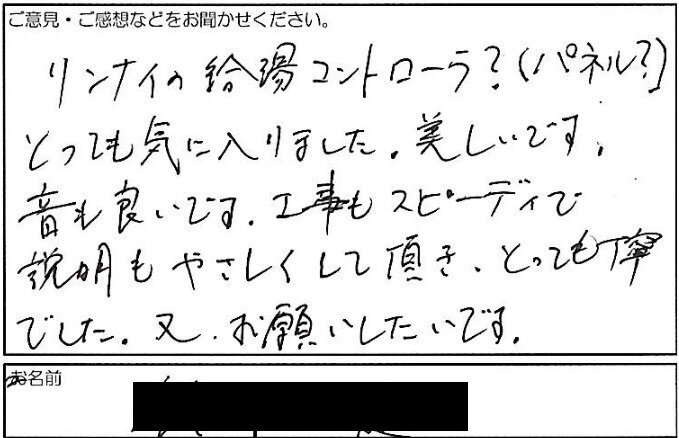 ご意見・ご感想などをお聞かせください。
リンナイの給湯コントローラ?(パネル?)
とっても気に入りました。美しいです。
音も良いです。工事もスピーディで
説明もやさしくして頂き、とっても丁寧
でした。又、お願いしたいです。
お名前